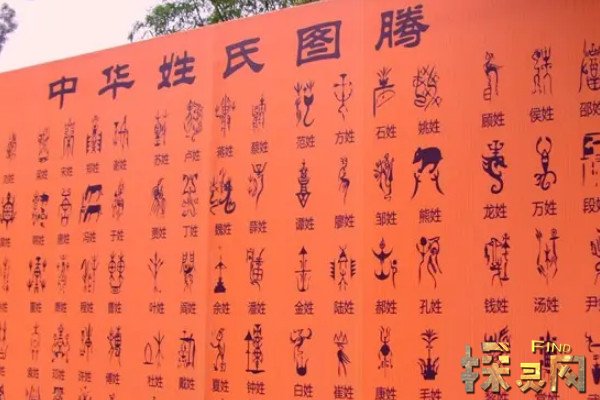 中华姓氏图腾
梁姓 宋姓 郑姓 谢姓 苏姓 卢姓 蒋姓 蔡姓 范姓 方姓 石姓 姚姓 顾姓 侯姓 邵姓
冯姓 于姓 贾姓 丁姓 魏姓 薛姓 谭姓 廖姓 邹姓 熊姓 龙姓 万姓 段
程姓 曹姓 叶姓 阎姓 余姓 潘姓 金姓 陆姓 郝姓 孔姓 钱姓 汤姓 尹
邓姓 许姓 傅姓 杜姓 戴姓 夏姓 钟姓 白姓 崔姓 康姓 毛姓
FIND
探灵网